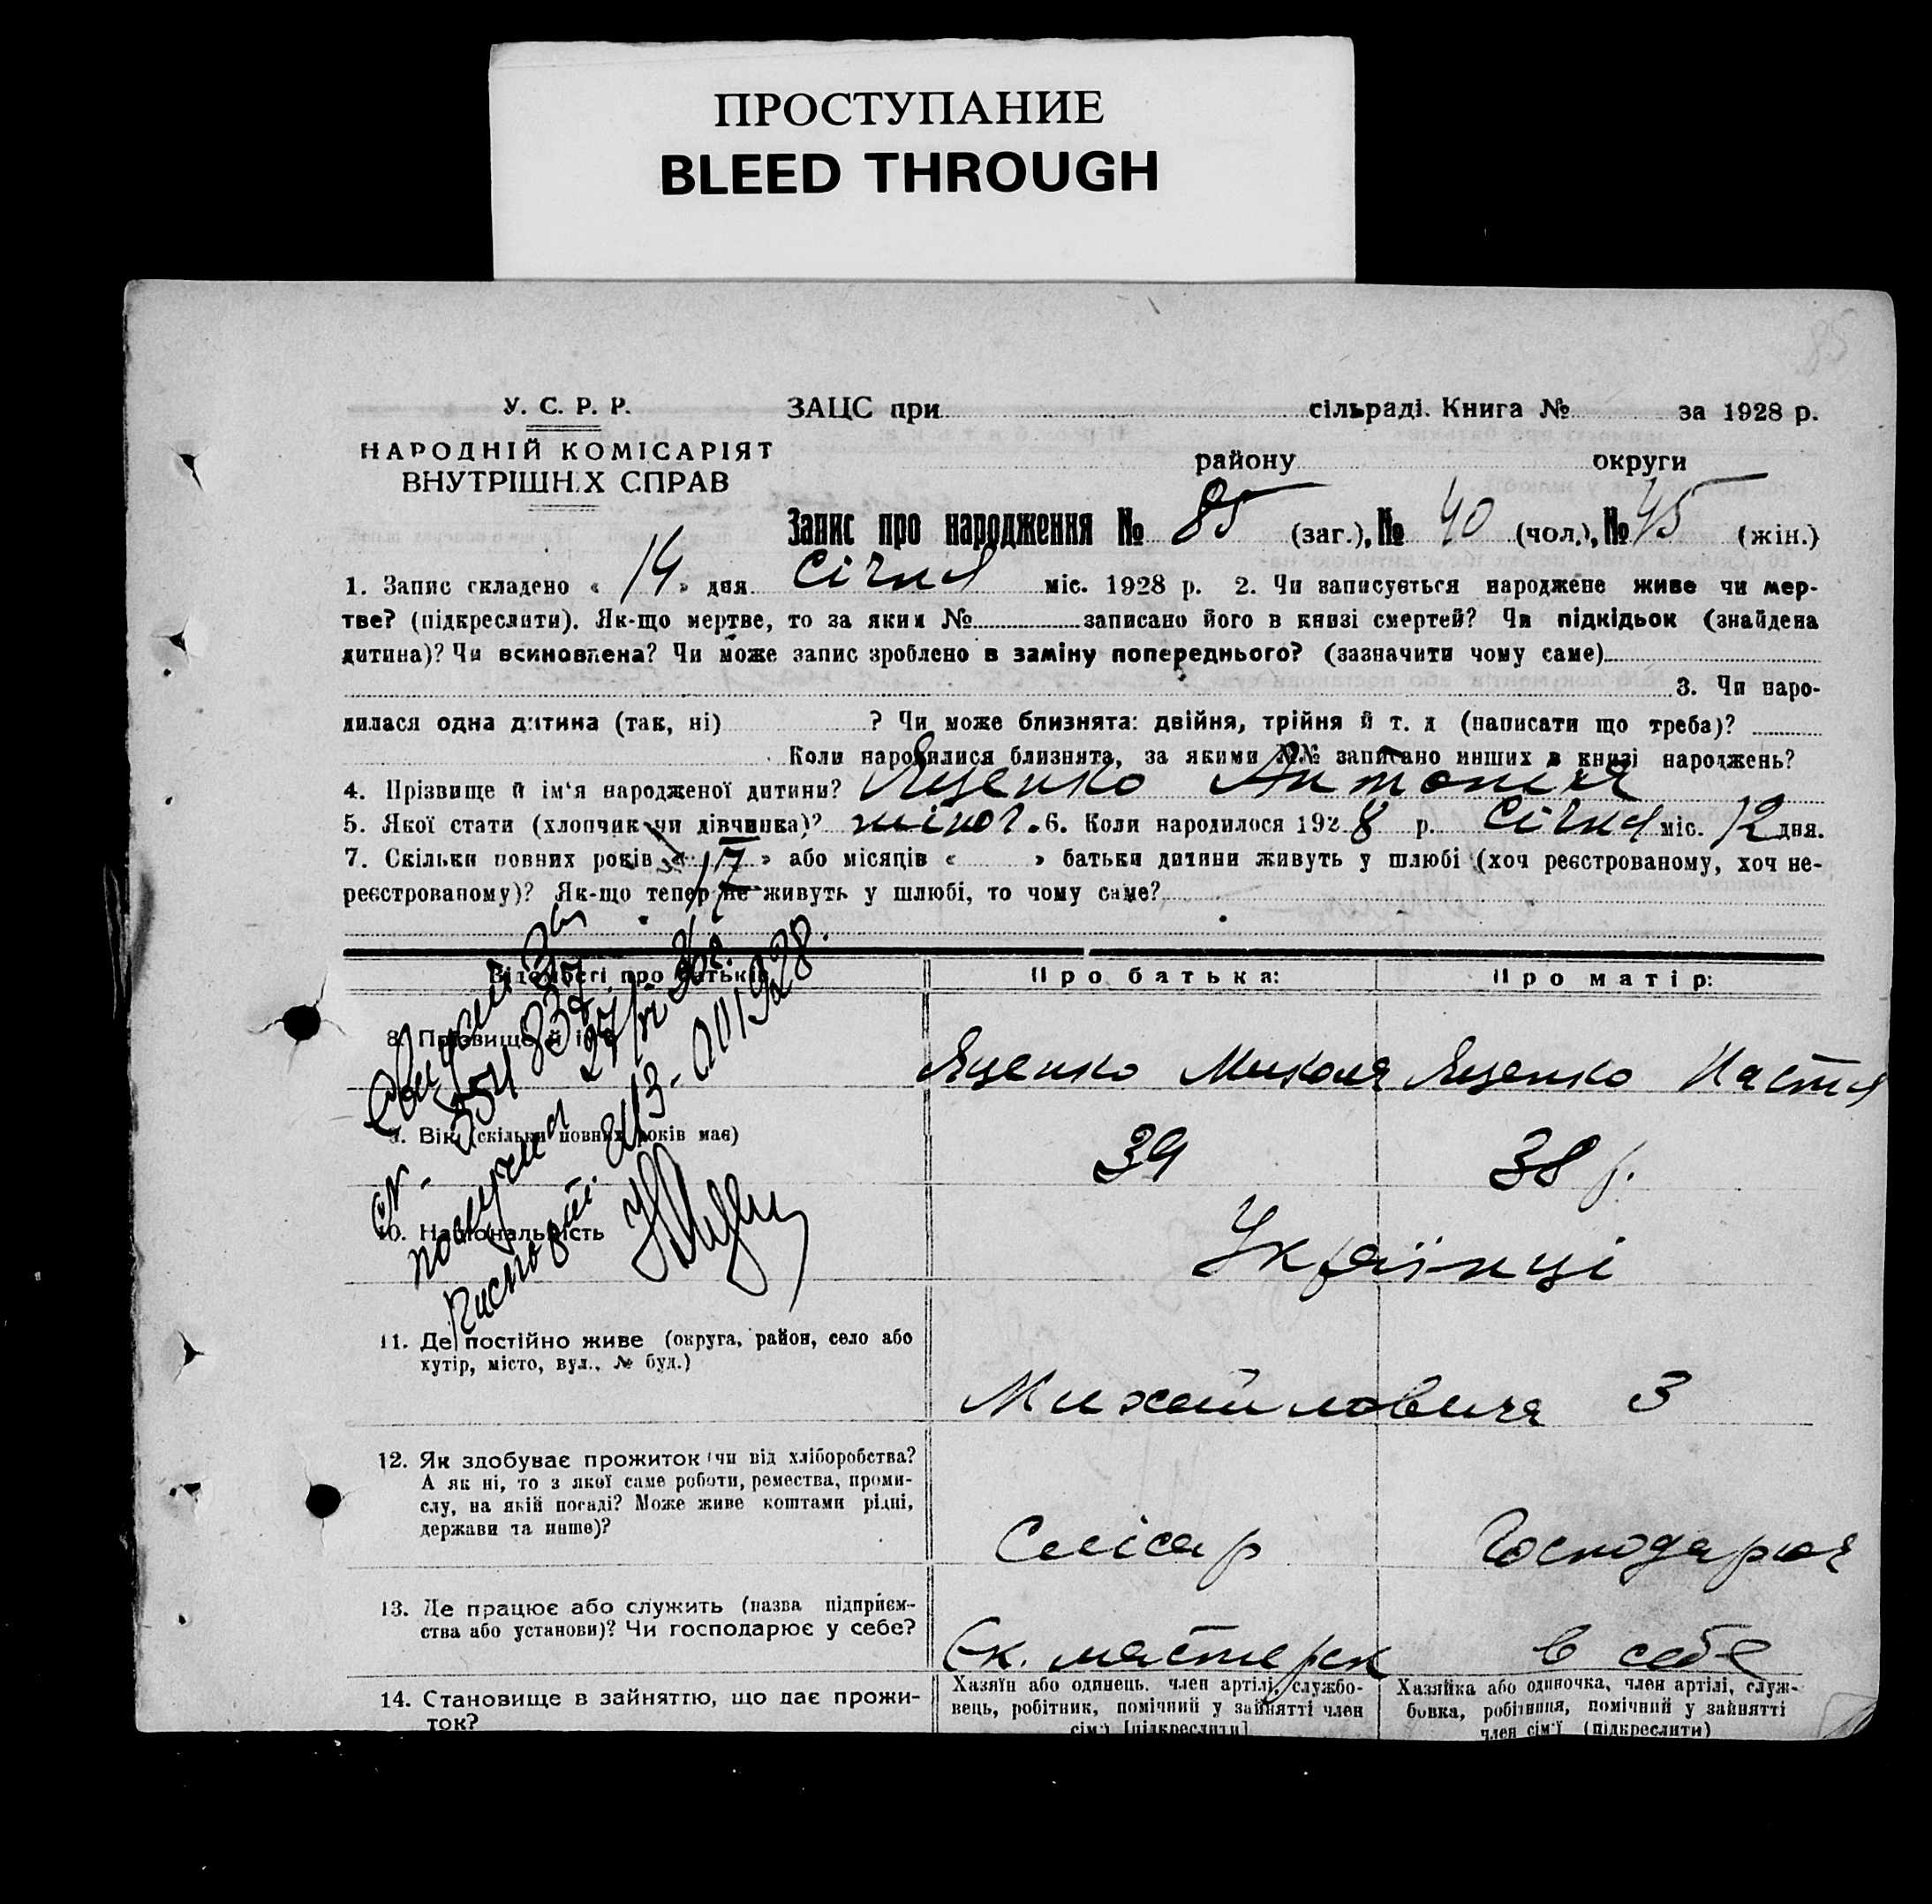 ПРОСТУПАНИЕ
BLEED THROUGH
85
У. С. Р. Р.
НАРОДНІЙ КОМІСАРІЯТ
ВНУТРІШНІХ СПРАВ
ЗАЦС при сільраді. Книга № за 1928 р.
району округи
Запис про народження № 85 (заг.), № 40 (чол.), № 45 (жін.)
1. Запис складено « 14 » дня Січня міс. 1928 р. 2. Чи записується народжене живе чи мер-
тве? (підкреслити). Як-що мертве, то за яким № записано його в книзі смертей? Чи підкідьок (знайдена
дитина)? Чи всиновлена? Чи може запис зроблено в заміну попереднього? (зазначити чому саме)
3. Чи наро-
дилася одна дитина (так, ні) ? Чи може близнята: двійня, трійня й т. д (написати що треба)?
Коли народилися близнята, за якими №№ записано инших в книзі народжень?
4. Прізвище й ім'я народженої дитини? Яценко Антоніна
5. Якої стати (хлопчик чи дівчинка)? жіноч. 6. Коли народилося 1928 р. Січня міс. 12 дня.
7. Скільки повних років « 17 » або місяців « » батьки дитини живуть у шлюбі (хоч реєстрованому, хоч не-
реєстрованому)? Як-що тепер не живуть у шлюбі, то чому саме?
Відомості про батьків Про батька: Про матір:
8. Прізвище й ім'я
Яценко Микола Яценко Настя
9. Вік (скільки повних років має)
39 38 р.
10. Національність
Українці
11. Де постійно живе (округа, район, село або
хутір, місто, вул., № буд.)
Михайловича 3
12. Як здобуває прожиток (чи від хліборобства?
А як ні, то з якої саме роботи, ремества, проми-
слу, на якій посаді? Може живе коштами рідні,
держави та инше)?
Слісар Господарює
13. Де працює або служить (назва підприєм-
ства або установи)? Чи господарює у себе?
в себе
14. Становище в зайняттю, що дає прожи-
ток?
Хазяїн або одинець, член артілі, службо-
вець, робітник, помічний у зайнятті член
сім'ї [підкреслити]
Хазяйка або одиночка, член артілі, служ-
бовка, робітниця, помічний у зайнятті
член сім'ї (підкреслити)